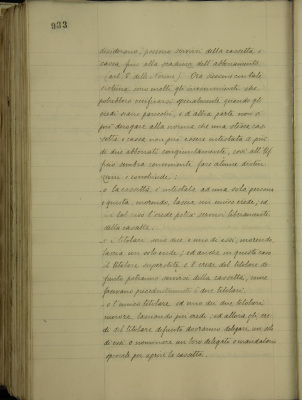 933
desiderano, possono servirsi della cassetta, o
cassa fino alla scadenza dell'abbonamento
(art. 8 delle Norme). Ora siccome un tale
sistema sono molti gli inconvenienti che
potrebbero verificarsi specialmente quando gli
eredi siano parecchi, e d'altra parte non si
può derogare alla norma che una stessa cas-
setta o cassa non può essere intestata a più
di due abbonati congiuntamente, così all'Uf-
ficio sembra conveniente fare alcune distin-
zioni e conchiude:
o la cassetta è intestata ad una sola persona
e questa, morendo, lascia un unico erede; ed
in tal caso l'erede potrà servirsi liberamente
della cassetta.
o i titolari sono due e uno di essi, morendo,
lascia un solo erede; ed anche in questo caso
il titolare superstite e l'erede del titolare de-
funto potranno servirsi della cassetta, come
facevano precedentemente i due titolari.
o l'unico titolare, od uno dei due titolari
muore lasciando più eredi; ed allora gli ere-
di del titolare defunto dovranno delegare un solo
di essi o nominare un loro delegato o mandatario
speciale per aprire la cassetta.